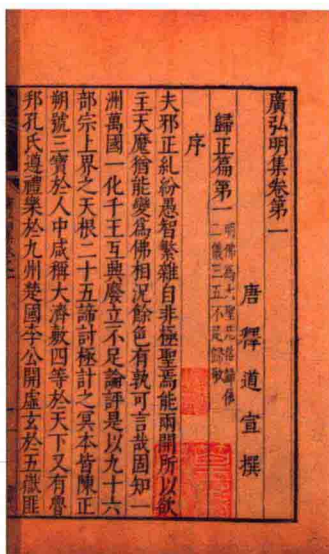 廣弘明集卷第一
唐釋道宣撰
歸正篇第一
明佛爲大聖凡俗歸依
二儀三五不足
序
夫邪正糺紛愚智繁雜自非極聖焉能兩開所以欲
主天魔猶能變爲佛相況餘色有孰可言哉固知一
洲萬國一化千王互興廢立不足論評是以九十六
部宗上界之天根二十五諦討極計之冥本皆陳正
朔號三寶於人中咸稱大濟敷四等於天下又有魯
邦孔氏遵禮樂於九州楚國李公開虛玄於五嶽匪